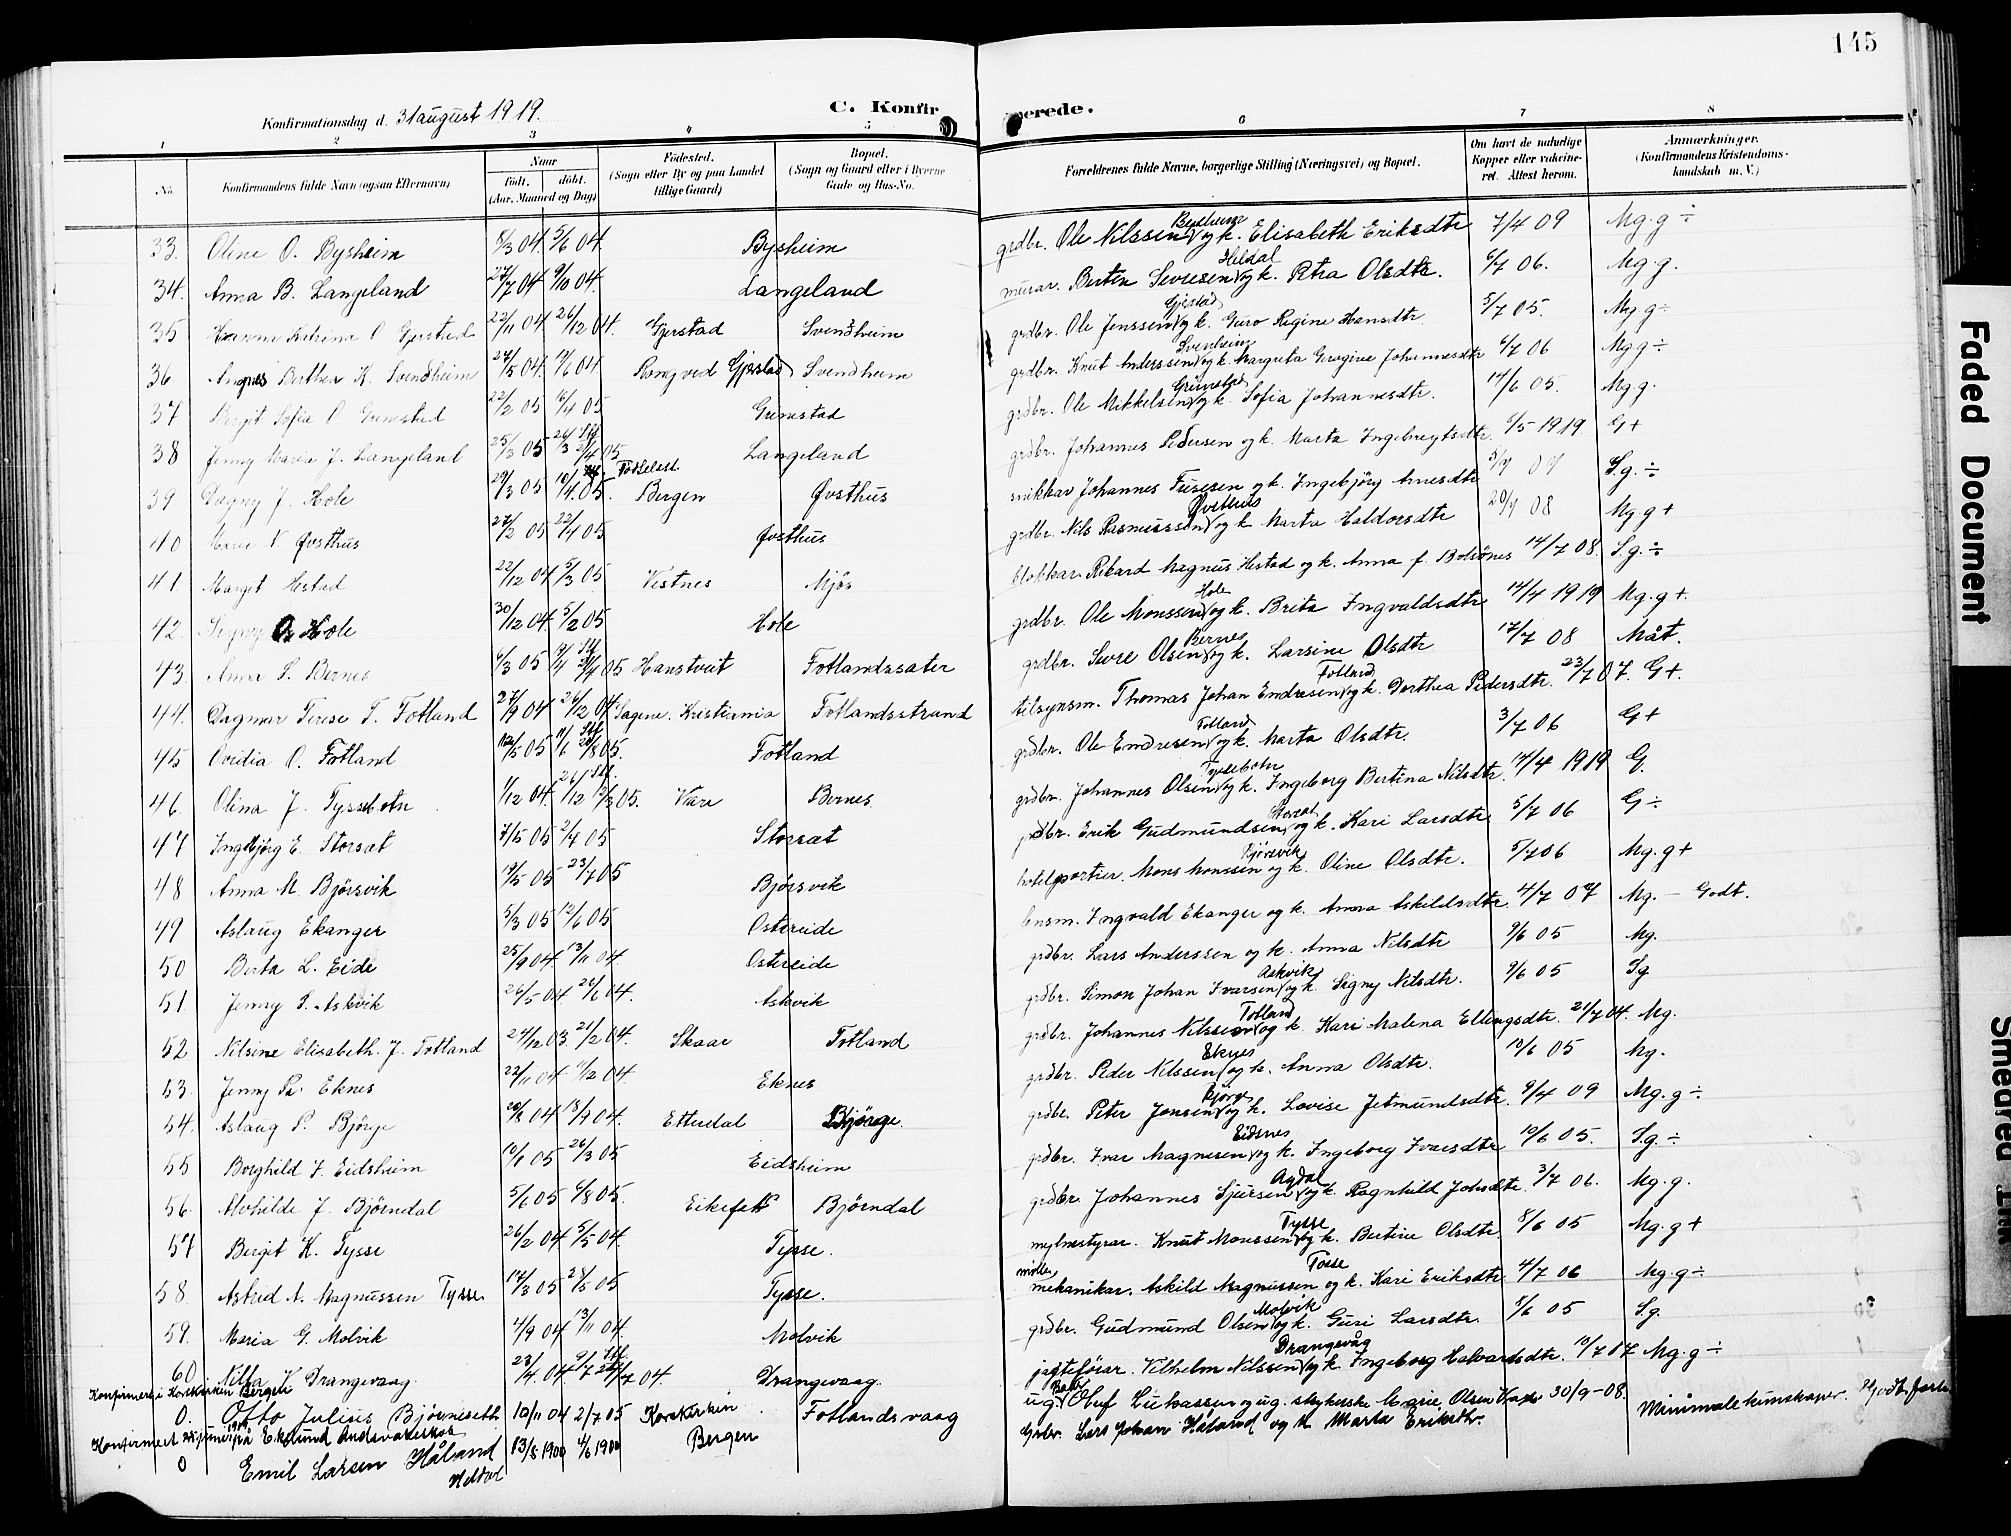 145
Konfirmationsdag d. 31 august 1919.
C. Konfirmerede.
1 2 3 4 5 6 7 8
No. Konfirmandens fulde Navn (ogsaa Efternavn) Naar født. døbt. (Aar, Maaned og Dag) Fødested. (Sogn eller By og paa Landet tillige Gaard) Bopæl. (Sogn og Gaard eller i Byerne Gade og Hus-No. Forældrenes fulde Navne, borgerlige Stilling (Næringsvei) og Bopæl. Om havt de naturlige Kopper eller vakcineret. Attest herom. Anmærkninger. (Konfirmandens Kristendomskundskab m. V.)
33. Oline O. Bysheim 5/3 04 5/6 04. Bysheim grdbr. Ole Nilssen Bysheim og k. Elisabeth Eriksdtr 7/4 09 Mg. g ÷
34. Anna B. Langeland 27/7 04 9/10 04. Langeland murar. Berten Seversen Heldal og k. Petra Olsdtr. 6/7 06. Mg. g.
35 Hanna Katrina O. Gjerstad 22/11 04 26/12 04. Gjerstad Svendheim grdbr. Ole Jenssen Gjerstad og k. Guro Regine Hansdtr. 5/7 05. Mg. g ÷
36 Agnes Berthea K. Svendheim 27/5 04 04 Gjerstad Svendheim grdbr. Knut Anderssen Svenheim og k. Margreta Gurgine Johannesdtr 6/7 06 Mg g ÷
37 Bergit Sofia O. Grimstad 22/2 05 4/4 05 Grimstad grdbr. Ole Mikkelsen Grimstad og k. Sofia Johannesdtr. 14/6 05. Mg. g.
38 Jenny Maria J. Langeland 25/3 05 26/3 Stf 2/4 05 Langeland grdbr. Johannes Pedersen og k. Marta Ingebregtsdtr. 6/5 1919 G +
39 Dagny J. Hole 29/3 05 10/4 05. Fødselsst. Bergen Øvsthus snikkar Johannes og k. Ingebjörg Arnesdtr 5/7 07 S. g. ÷
40 Marie N. Øvsthus 27/2 05 22/4 05 Øvsthus grdbr. Nils Rasmussen Øvsthus og k. Marta Haldorsdtr 20/7 08 Mg g +
41 Margit Hestad 22/12 04 5/3 05 Vestnes Mjøs blokkar. Rikard Magnus Hestad og k. Anna f. Bolsönes 14/7 08. S. g. ÷
42. Signy O. Hole 30/12 04 5/2 05 Hole grdbr. Ole Monssen Hole og k. Brita Ingvaldsdtr 14/4 1919 Mg. g +.
43 Anna S. Bernes 6/3 05 Stf 05 Hanstveit Fotlandssæter grdbr. Sivre Olsen Bernes og k. Larsine Olsdtr 17/7 08 Måt.
44. Dagmar Terese T. Fotland 27/9 04 26/12 04. Sagene. Kristiania Fotlandsstrand tilsynsm. Thomas Johan Endresen Fotland og k. Dorthea Pedersdtr. 23/7 07. G +.
45 Ovidia O. Fotland 12/5 05 11/6 Stf 05. Fotland grdbr. Ole Endresen Fotland og k. Marta Olsdtr. 3/7 06 G +
46. Olina J. Tyssebotn 1/12 04. 26/12 Stf. 12/3 05. Være Bernes grdbr. Johannes Olsen Tyssebotn og k. Ingeborg Bertina Nilsdtr 14/4 1919 G.
47 Ingebjørg E. Storsæt 7/5 05 2/4 05 Storsæt grdbr. Erik Gudmundsen Storsæt og k. Kari Larsdtr 5/7 06 G ÷
48 Anna M. Bjørsvik 19/5 05 23/7 05 Bjørsvik hotelportier. Mons Monssen Bjørsvik og k. Oline Olsdtr. 5/7 06 Mg. g +
49 Aslaug Ekanger 5/3 05 12/6 05 Ostereide lensm. Ingvald Ekanger og k. Anna Askildsdtr. 4/7 07 Mg. – Godt.
50 Berta L. Eide 25/9 04 13/11 04. Ostereide grdbr. Lars Anderssen og k. Anna Nilsdtr 9/6 05 Mg.
51. Jenny S. Askvik 26/5 04 26/6 04. Askvik grdbr. Simon Johan Ivarsen Askvik og k. Signy Nilsdtr. 9/6 05 Sg
52 Nilsine Elisabeth. J. Fotland 24/12 03 21/2 04. Skaar Fotland grdbr. Johannes Nilssen Fotland og k. Kari Malena Ellingsdtr. 21/7 04. Mg.
53. Jenny P. Eknes 22/11 04 11/12 04. Eknes grdbr. Peder Nilssen Eknes og k. Anna Olsdtr. 10/6 05 Mg.
54. Aslaug P. Bjørge 20/8 04 18/9 04. Etterdal Bjørge grdbr. Peter Jonsen Bjørge og k. Lovise Jetmundsdtr. 9/4 09 Mg. g ÷
55 Borghild I. Eidsheim 10/1 05 26/3 05 Eidsheim grdbr. Ivar Magnesen Eidsnes og k. Ingeborg Ivarsdtr 10/6 05. S.g. ÷
56. Alvhilde J. Bjørndal 5/6 05 6/8 05. Eikefet Bjørndal grdbr. Johannes Sjursen Agdal og k. Ragnhild Johsdtr. 3/7 06. Mg. g.
57 Bergit K. Tysse 26/2 04 5/5 04. Tysse. mylnestyrar. Knut Monssen Tysse og k. Bertine Olsdtr 8/6 05 Mg. g +
58. Astrid A. Magnussen Tysse 14/3 05 28/5 05 Tysse. møller, mekanikar. Askild Magnussen Tosse og k. Kari Eriksdtr 4/7 06 Mg. g ÷
59. Maria G. Molvik 4/9 04 13/11 04. Molvik grdbr. Gudmund Olsen Molvik og k. Guri Larsdtr. 5/6 05 S.g.
60 V. Drangevaag. 23/4 04 9/7 Stf 04. Drangevaag. jagteförar. Vilhelm Nilssen Drangevåg og k. Ingeborg Halvardsdtr. 19/7 07 Mg. g ÷
Konfirmert i Korskirken Bergen
0. Otto Julius Bjørneseth 10/11 04 2/7 05 Korskirken Fotlandsvaag ug. Oluf Lukassen og ug. Olsen 30/9-08. Minimale kunskaper. Godt
Konfirmert på Eknes
0 Emil Larsen Håland Heldal 13/5 1900 4/6 1900 Bergen Grbr. Lars Johan Håland og k Marta Eriksdtr.
Faded Document
Smeared Ink